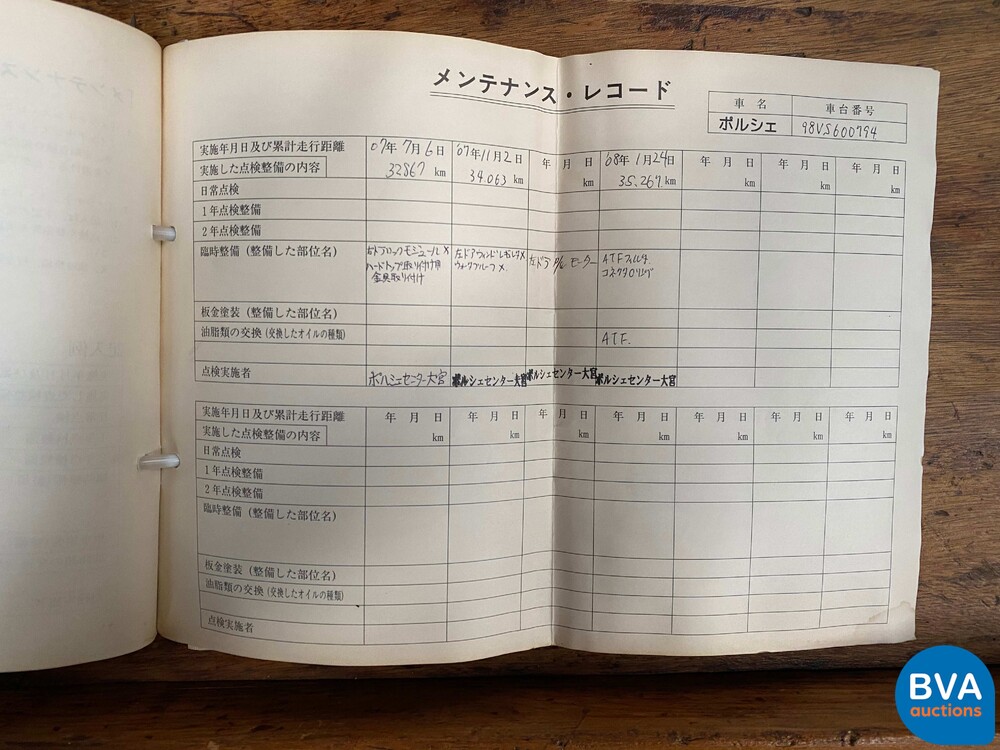 メンテナンス・レコード
車名 車台番号
ポルシェ 98VS600794
実施年月日及び累計走行距離 07年7月6日 07年11月2日 年月日 08年1月24日 年月日 年月日 年月日
実施した点検整備の内容 32867 km 34.063 km km 35.267 km km km km
日常点検
1年点検整備
2年点検整備
臨時整備(整備した部位名) 右ドアロックモジュール × 左ドアウィンドレギュレタ× 左ドア モーター ATFフィルタ
ハードトップ取り付け用 コネクタOリング
金具取り付け
板金塗装(整備した部位名)
油脂類の交換(交換したオイルの種類) ATF.
点検実施者 ポルシェセンター大宮 ポルシェセンター大宮 ポルシェセンター大宮 ポルシェセンター大宮
実施年月日及び累計走行距離 年月日 年月日 年月日 年月日 年月日 年月日 年月日
実施した点検整備の内容 km km km km km km km
日常点検
1年点検整備
2年点検整備
臨時整備(整備した部位名)
板金塗装(整備した部位名)
油脂類の交換(交換したオイルの種類)
点検実施者
BVA
auctions